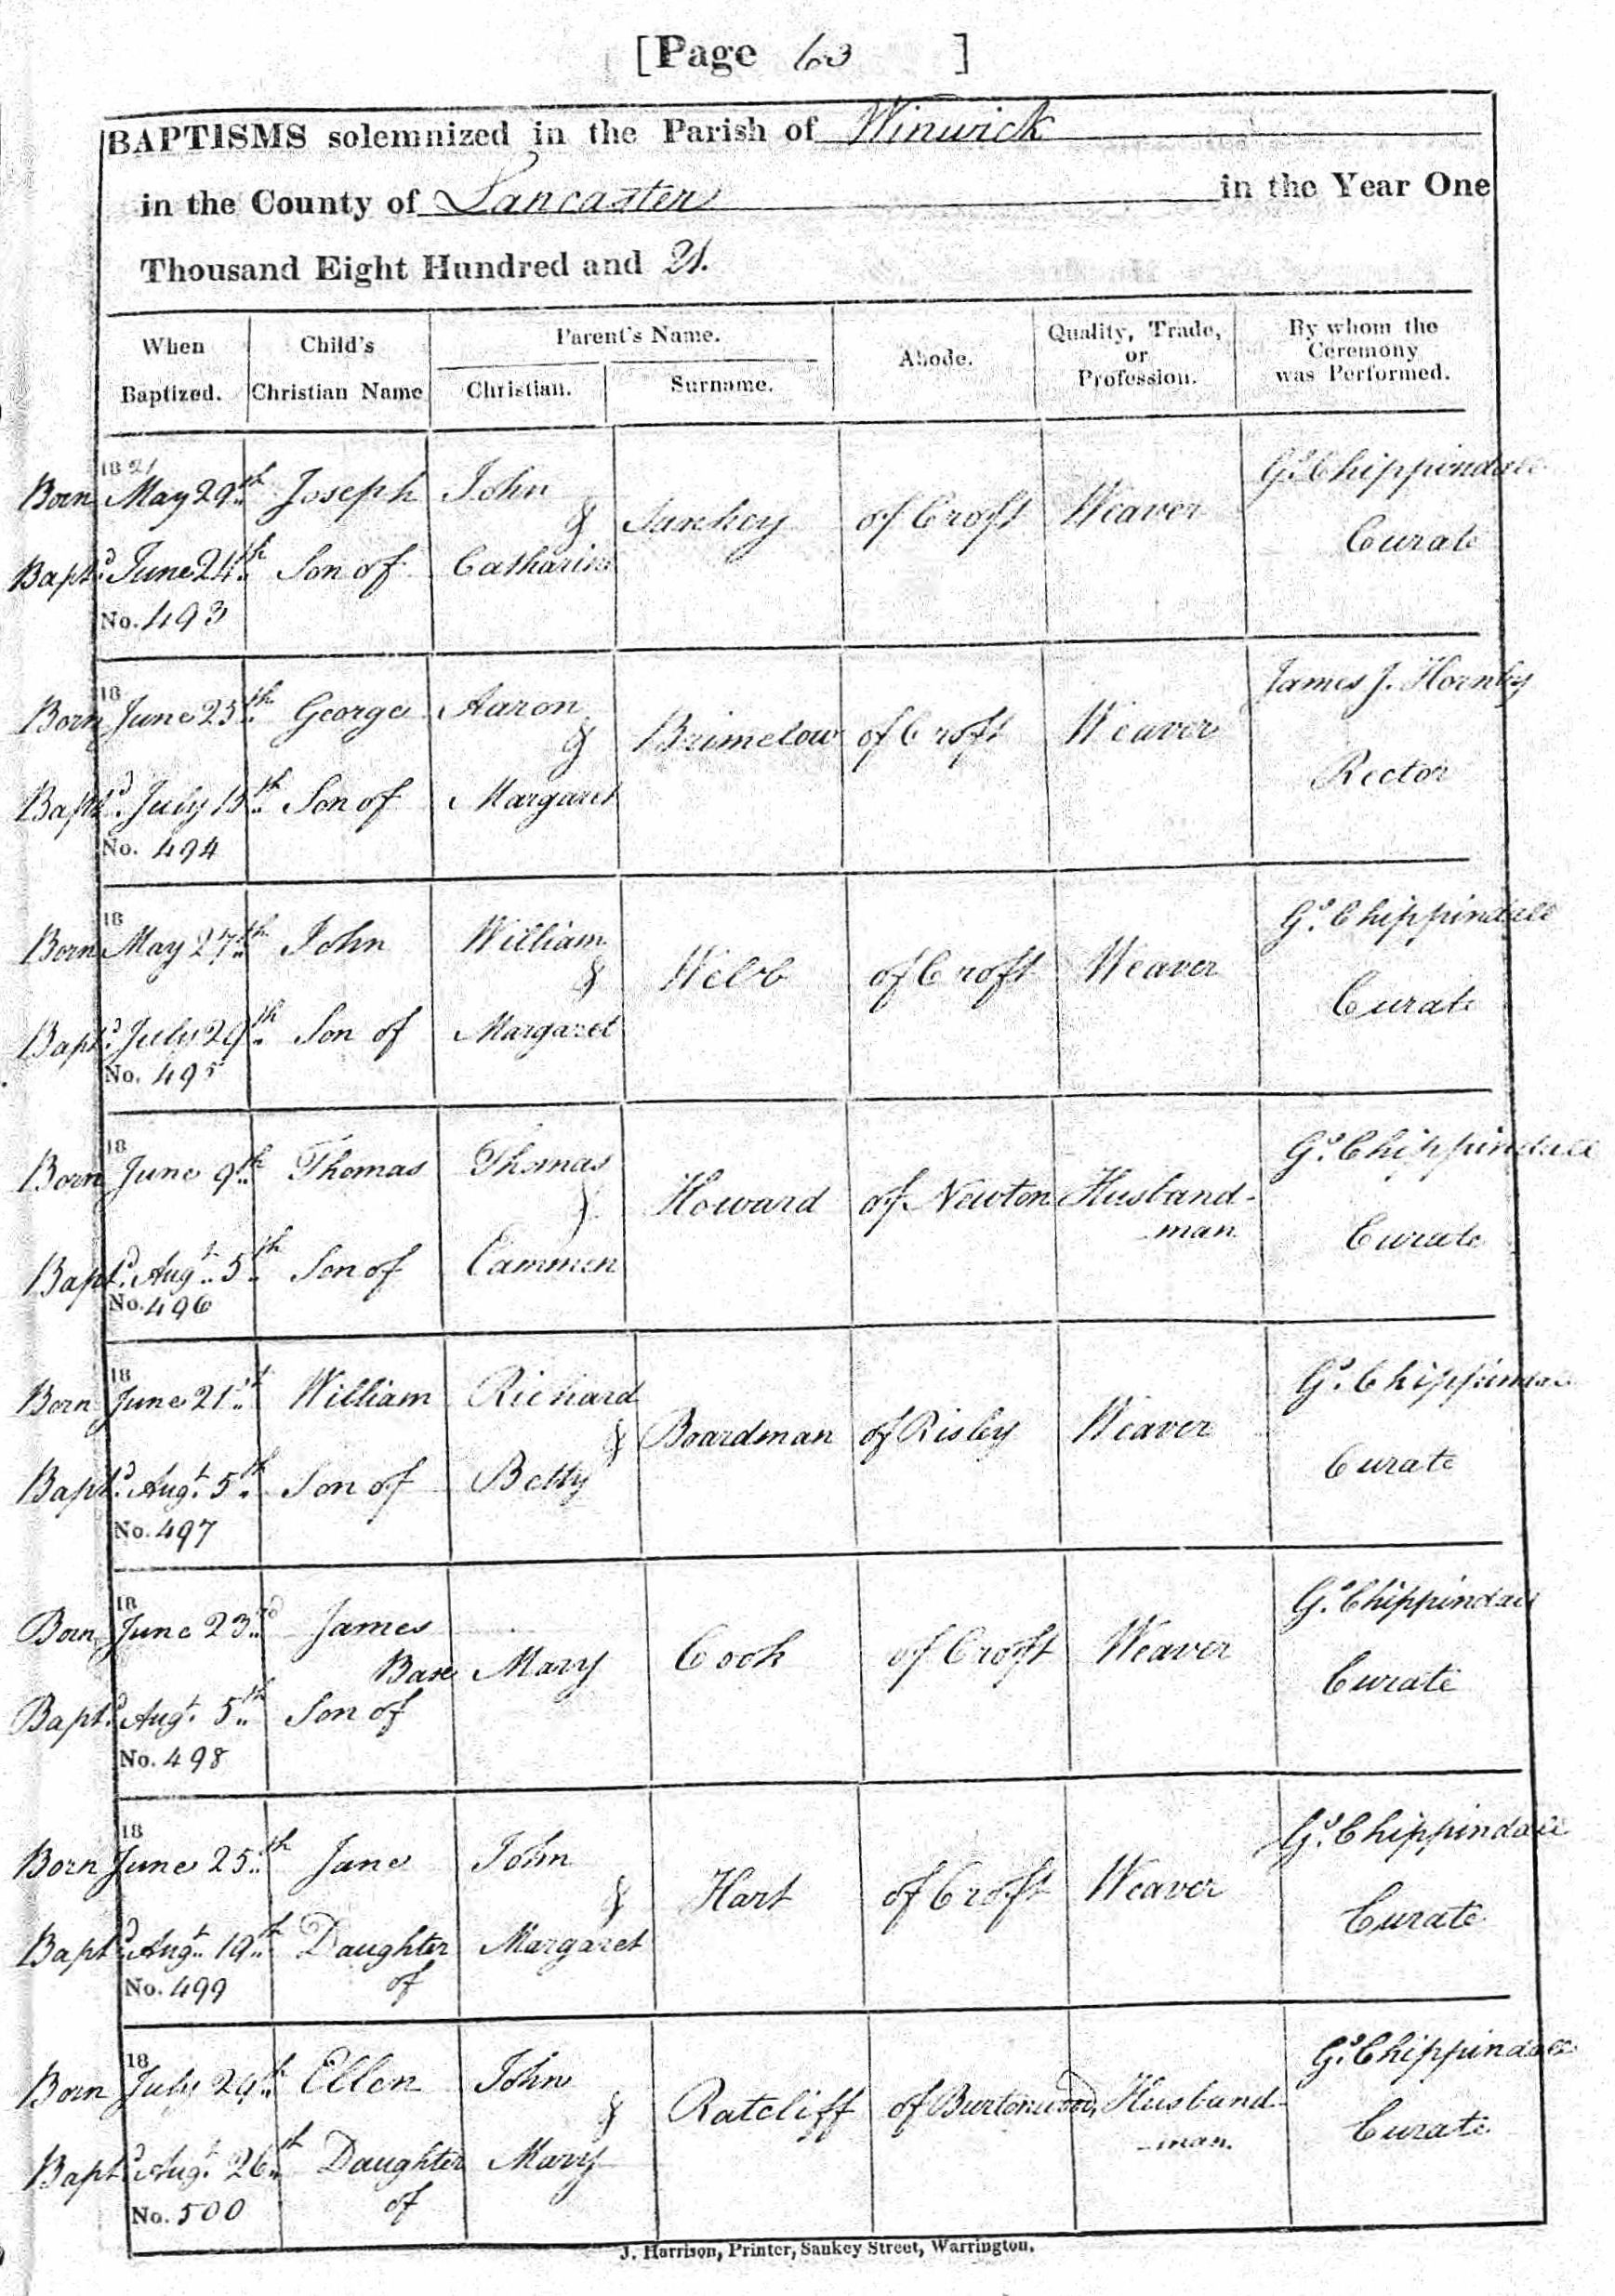 [Page 63 ]
BAPTISMS solemnized in the Parish of Winwick
in the County of Lancaster in the Year One
Thousand Eight Hundred and 21.
When Baptized. Child's Christian Name Parent's Name. Christian. Surname. Abode. Quality, Trade, or Profession. By whom the Ceremony was Performed.
1821
Born May 29th Joseph John & Sankey of Croft Weaver Gd. Chippindall
Baptd. June 24th Son of Catharine Curate
No. 493
18
Born June 25th George Aaron & Brimelow of Croft Weaver James J. Hornby
Baptd. July 15th Son of Margaret Rector
No. 494
18
Born May 27th John William & Webb of Croft Weaver Gd. Chippindall
Baptd. July 29th Son of Margaret Curate
No. 495
18
Born June 9th Thomas Thomas & Howard of Newton Husband-
man
Baptd. Augt. 5th Son of Cammen Gd. Chippindall Curate
No. 496
18
Born June 21st William Richard & Boardman of Risley Weaver Gd. Chippindall
Baptd. Augt. 5th Son of Betty Curate
No. 497
18
Born June 23rd James Gd. Chippindall
Base Mary Cook of Croft Weaver
Baptd. Augt. 5th Son of Curate
No. 498
18
Born June 25th Jane John & Hart of Croft Weaver Gd. Chippindall
Baptd. Augt. 19th Daughter Margaret Curate
of
No. 499
18
Born July 24th Ellen John & Ratcliff of Burtonwood, Husband-
man. Gd. Chippindall
Baptd. Augt. 26th Daughter Mary Curate
of
No. 500
J. Harrison, Printer, Sankey Street, Warrington.